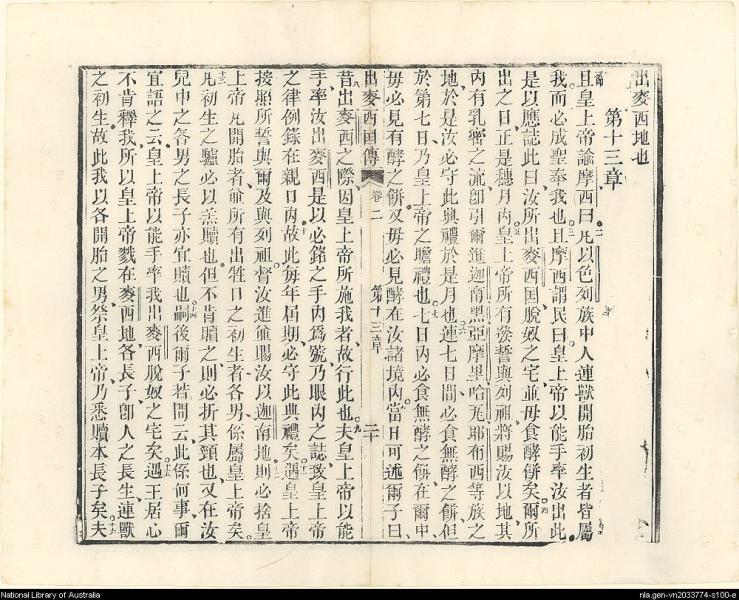 出麥西地也
第十三章
且皇上帝諭摩西曰二凡以色列族中人連獸開胎初生者皆屬
我而必成聖奉我也三且摩西謂民曰皇上帝以能手率汝出此
是以應誌此日汝所出麥西国脫奴之宅並毋食酵餅矣四爾所
出之日正是穗月內五皇上帝所有發誓與列祖將賜汝以地其
內有乳蜜之流卽引爾進迦南黑亞摩里哈 耶布西等族之
地於是汝必守此典禮於是月也六連七日間必食無酵之餅但
於第七日乃皇上帝之瞻禮也七七日內必食無酵之餅在爾中
毋必見有酵之餅又毋必見酵在汝諸境內八當日可述爾子曰
出麥西国傳 卷二 第十三章 二十
昔出麥西之際因皇上帝所施我者故行此也九夫皇上帝以能
手率汝出麥西是以必銘之手內爲號乃眼內之誌致皇上帝
之律例錄在親口內十故此每年屆期必守此典禮矣十一遇皇上帝
按照所誓與爾及與列祖督汝進並賜汝以迦南地十二則必捨皇
上帝凡開胎者並所有出牲口之初生者各男係屬皇上帝矣
十三凡初生之驢必以羔贖也但不肯贖之則必折其頸也又在汝
兒中之各男之長子亦宜贖也十四嗣後爾子若問云此係何事爾
宜語之云皇上帝以能手率我出麥西脫奴之宅矣十五遇王居心
不肯釋我所以皇上帝戮在麥西地各長子卽人之長生連獸
之初生故此我以各開胎之男祭皇上帝乃悉贖本長子矣十六夫
National Library of Australia
nla.gen-vn2033774-s100-e